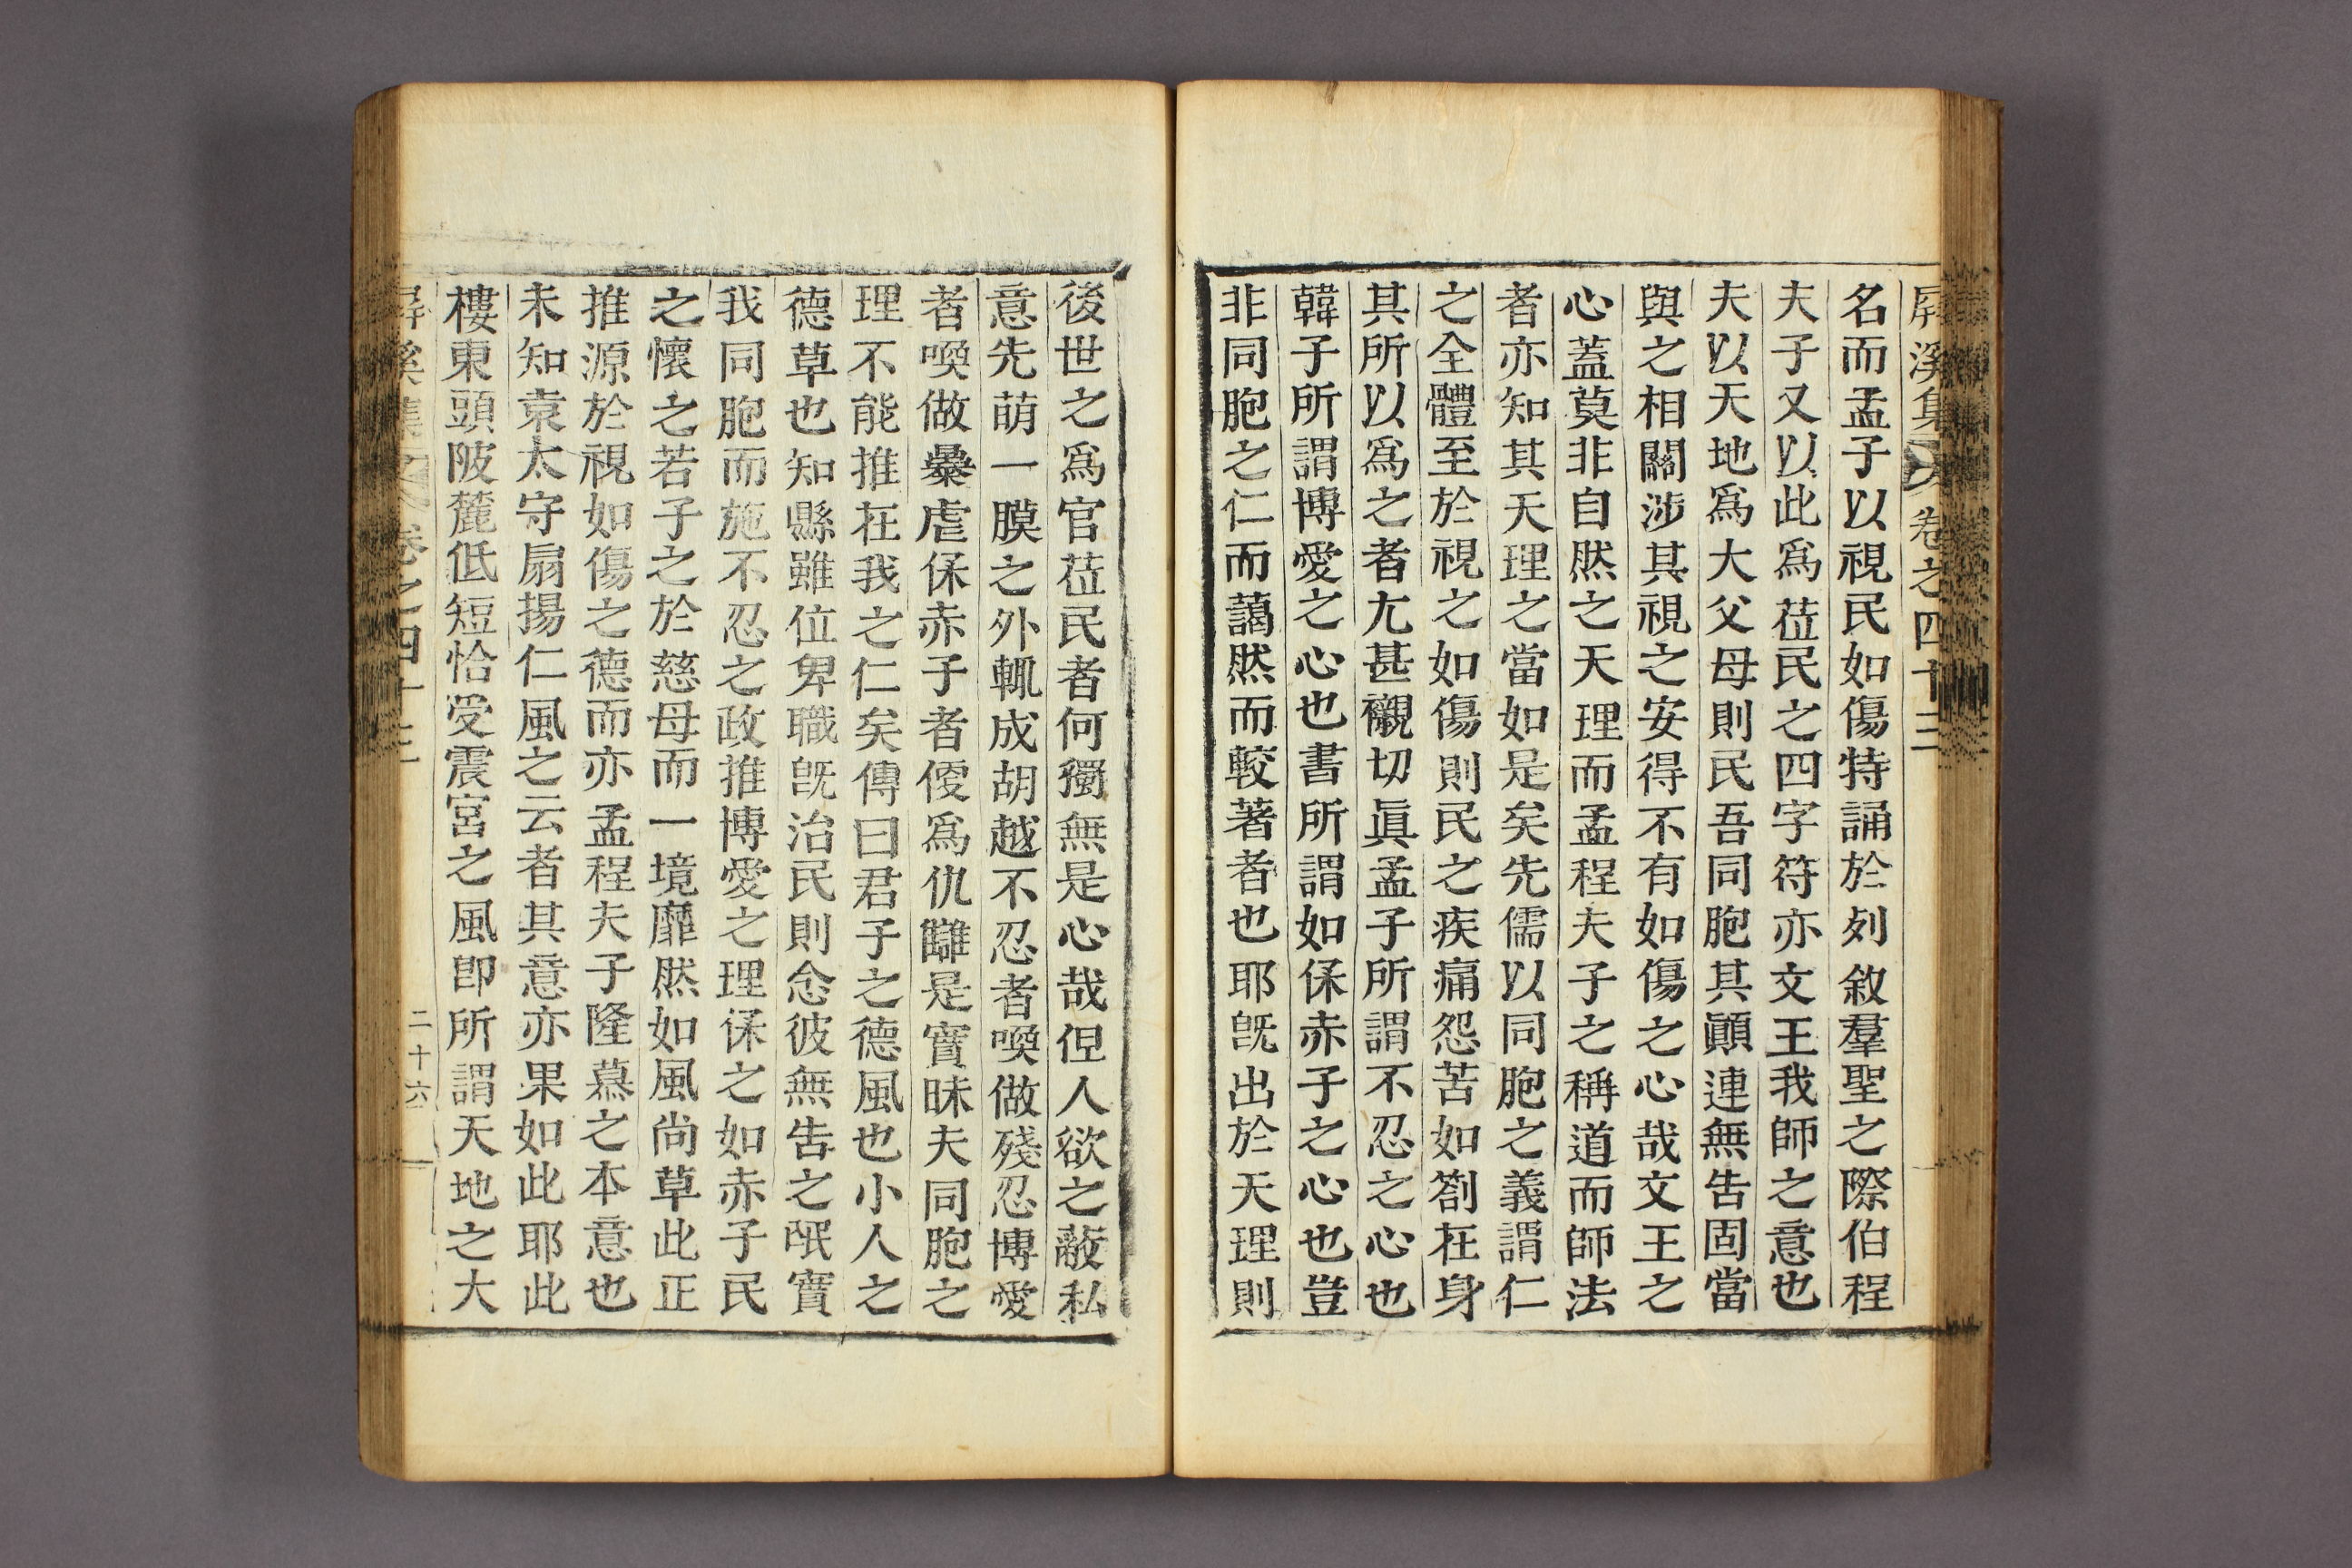 屛溪集 卷之四十三
名而孟子以視民如傷特誦於列敘羣聖之際伯程
夫子又以此爲莅民之四字符亦文王我師之意也
夫以天地爲大父母則民吾同胞其顚連無告固當
與之相關涉其視之安得不有如傷之心哉文王之
心蓋莫非自然之天理而孟程夫子之稱道而師法
者亦知其天理之當如是矣先儒以同胞之義謂仁
之全體至於視之如傷則民之疾痛怨苦如劄在身
其所以爲之者尤甚襯切眞孟子所謂不忍之心也
韓子所謂博愛之心也書所謂如保赤子之心也豈
非同胞之仁而藹然而較著者也耶旣出於天理則
後世之爲官莅民者何獨無是心哉但人欲之蔽私
意先萌一膜之外輒成胡越不忍者喚做殘忍博愛
者喚做曓虐保赤子者便爲仇讎是實昧夫同胞之
理不能推在我之仁矣傳曰君子之德風也小人之
德草也知縣雖位卑職旣治民則念彼無告之氓實
我同胞而施不忍之政推博愛之理保之如赤子民
之懷之若子之於慈母而一境靡然如風尙草此正
推源於視如傷之德而亦孟程夫子隆慕之本意也
未知袁太守扇揚仁風之云者其意亦果如此耶此
樓東頭陂麓低短恰受震宮之風卽所謂天地之大
屛溪集 卷之四十三 二十六